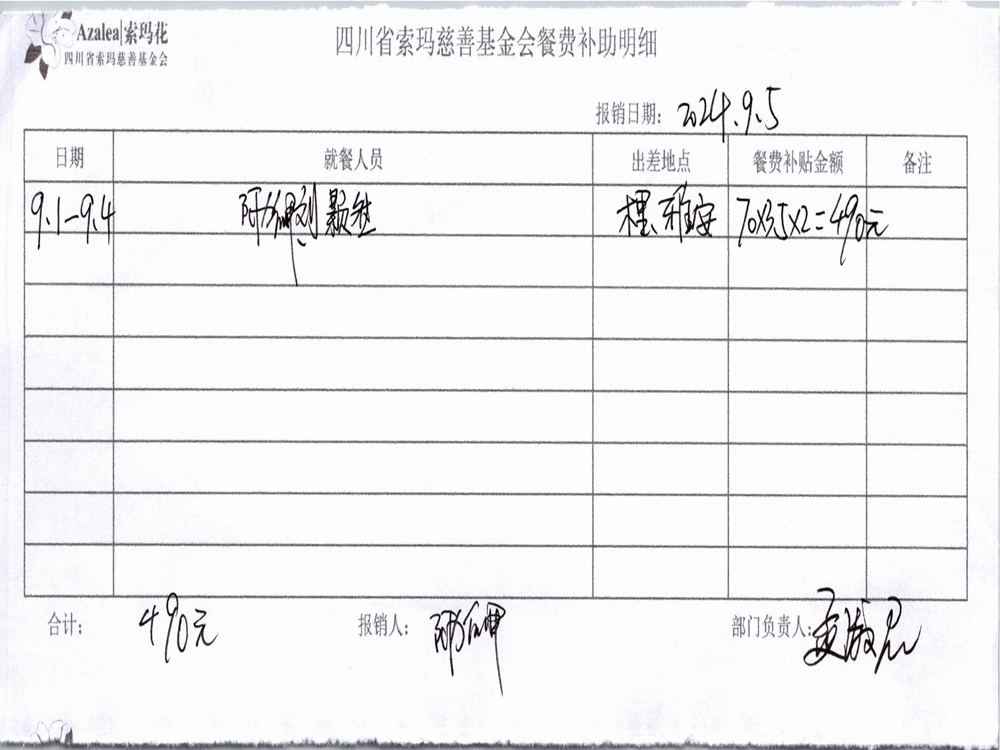 Azalea|索玛花
四川省索玛慈善基金会
四川省索玛慈善基金会餐费补助明细
报销日期： 2024.9.5
日期 就餐人员 出差地点 餐费补贴金额 备注
9.1-9.4 雅安 70×3.5×2=490元
合计： 490元 报销人： 部门负责人：